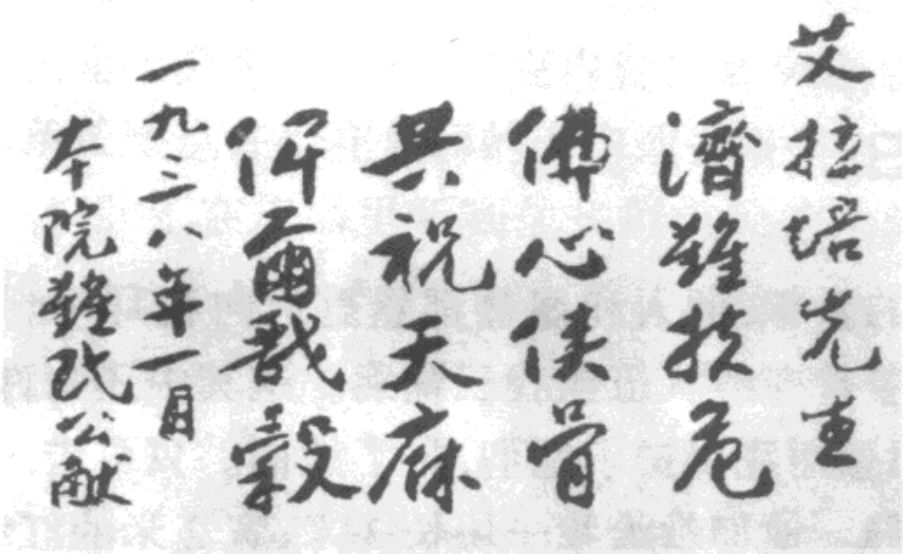 艾拉培先生
濟難扶危
佛心俠骨
共祝天庥
俾爾戩穀
一九三八年一月
本院難民公獻